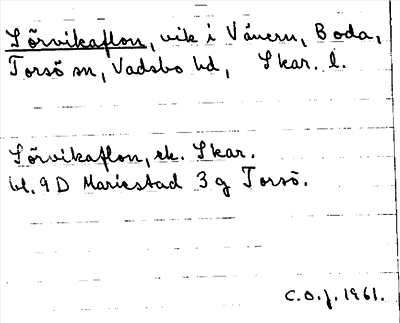 Sörvikaflon, vik i Vänern, Boda,
Torsö sn, Vadsbo hd, Skar. l.
Sörvikaflon, ek. Skar.
bl. 9 D Mariestad 3 g Torsö.
C.O.J. 1961.